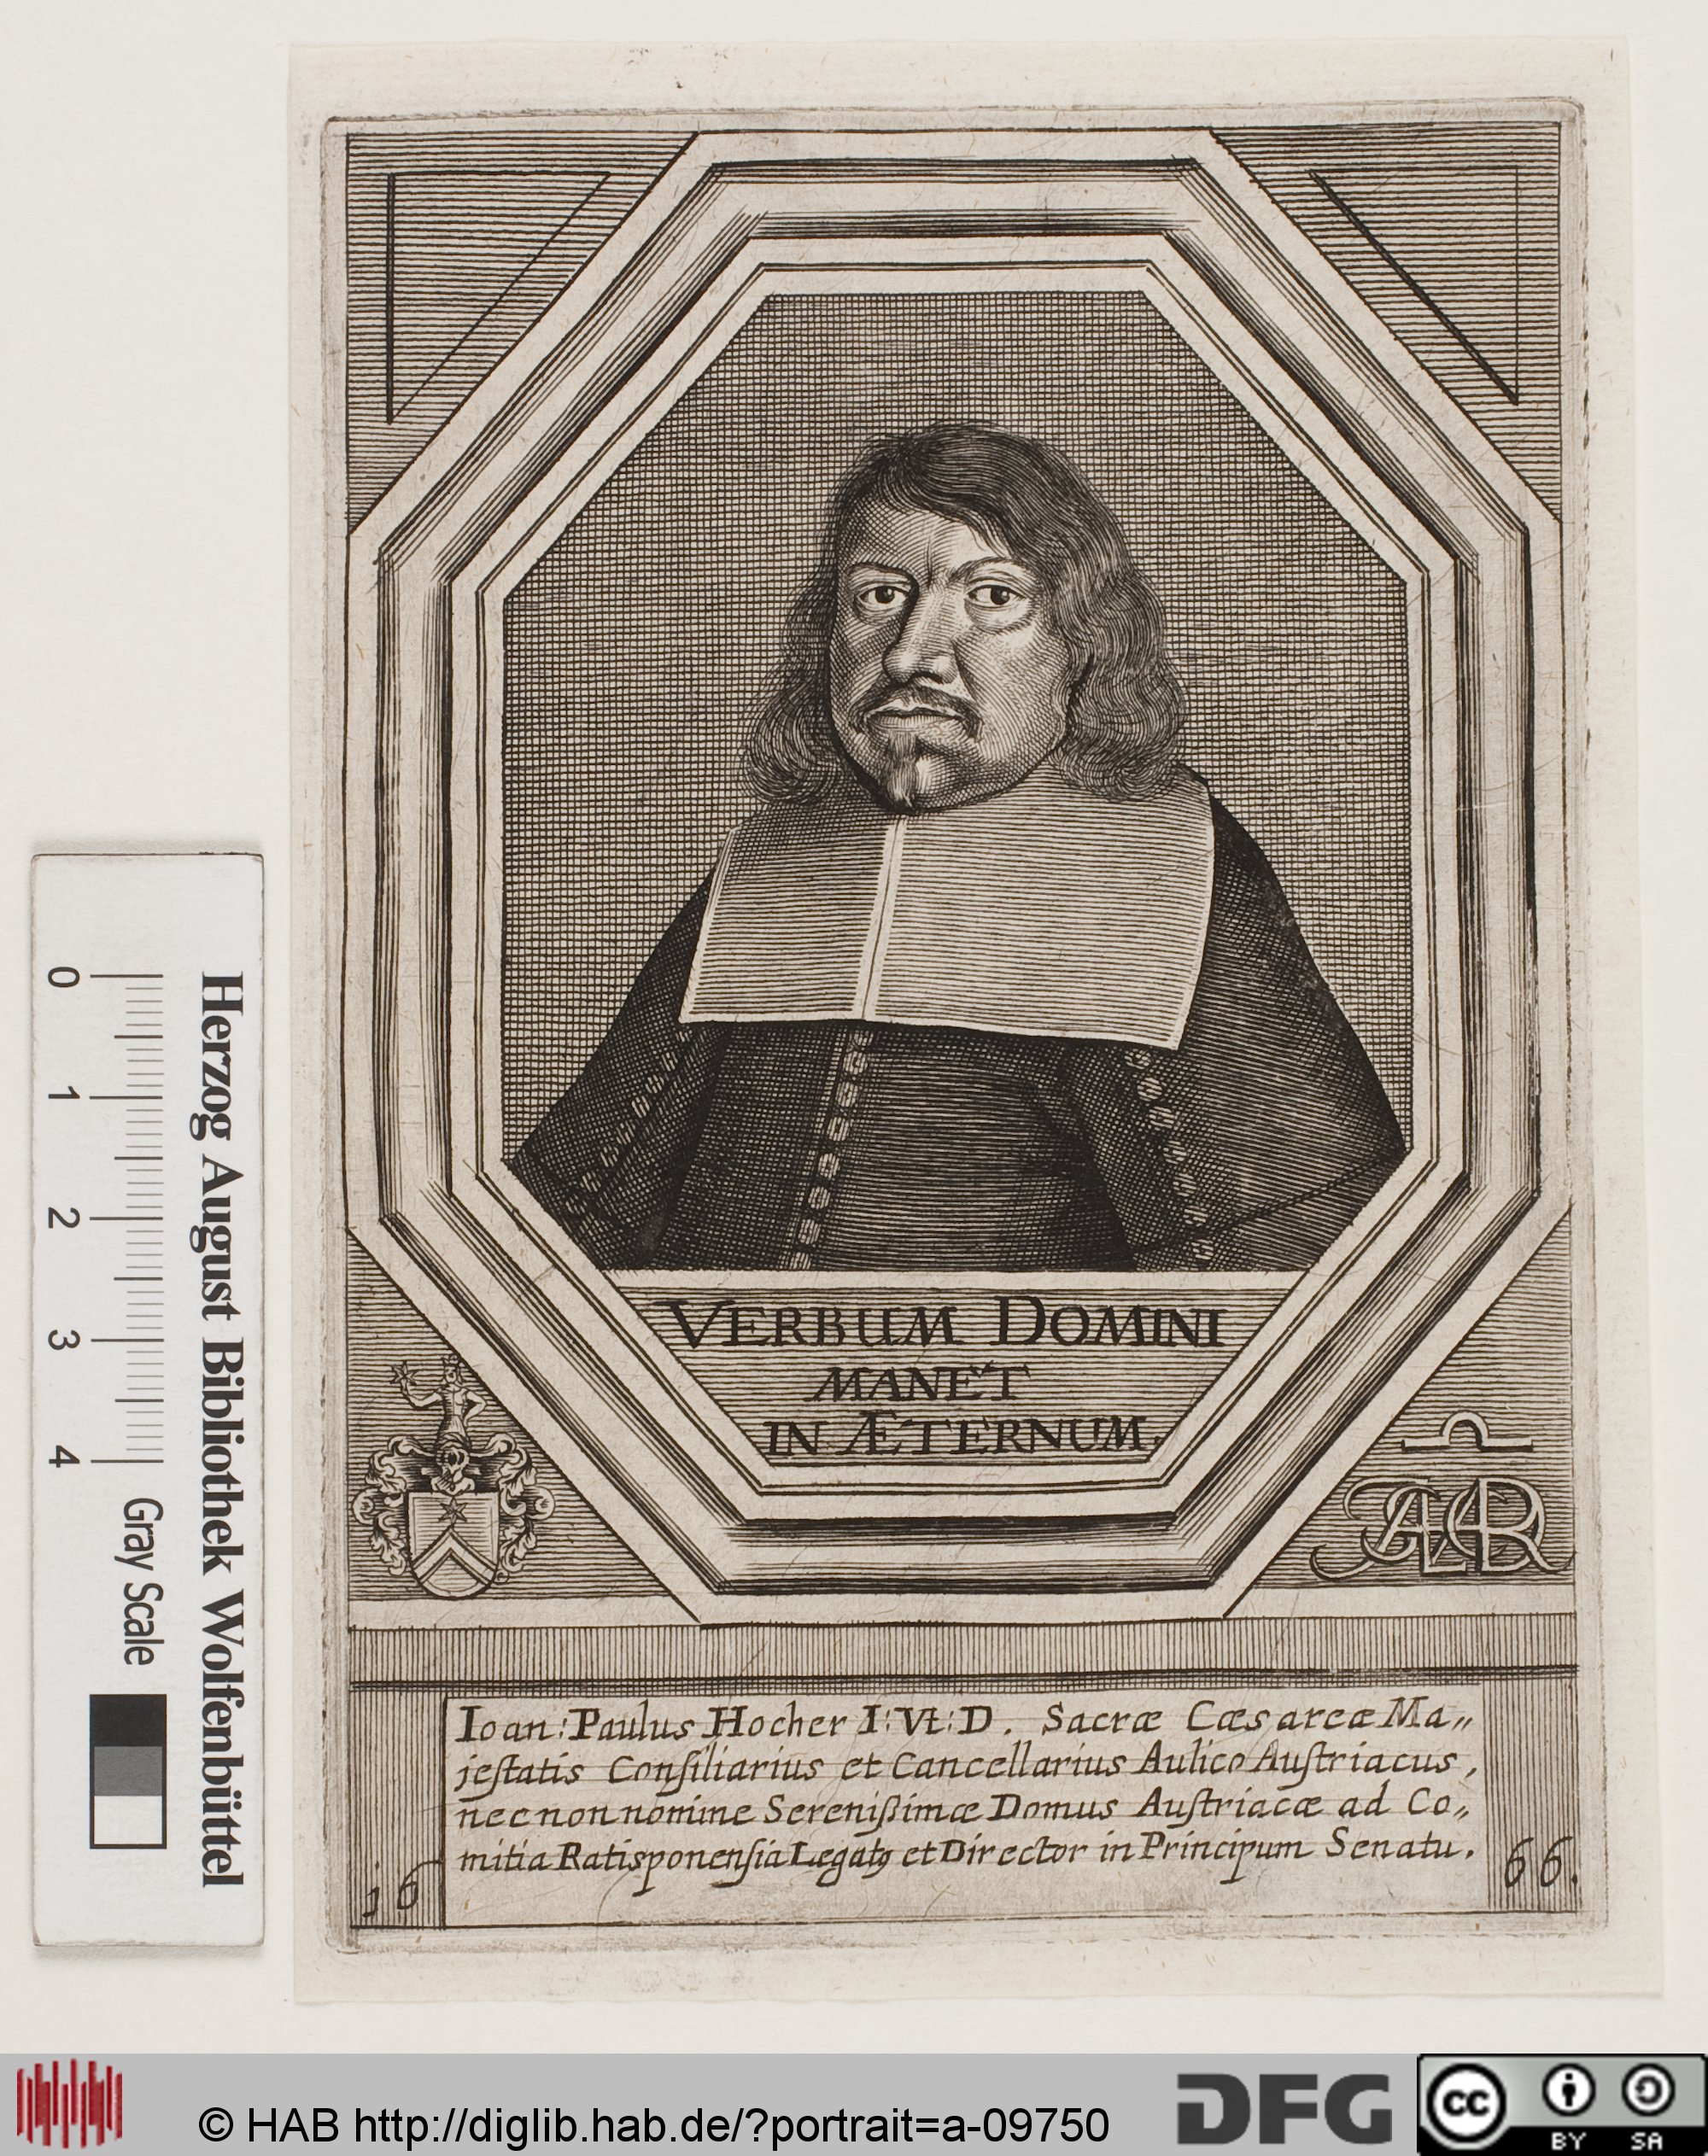 VERBUM DOMINI
MANET
IN ÆTERNUM.
Ioan: Paulus Hocher I: Vt: D. Sacræ Cæsareæ Ma„
jeſtatis Conſiliarius et Cancellarius Aulico Auſtriacus,
nec non nomine Sereniſsimæ Domus Auſtriacæ ad Co„
mitia Ratisponenſia Legatꝰ et Director in Principum Senatu.
16 66.
Herzog August Bibliothek Wolfenbüttel
0 1 2 3 4 Gray Scale
© HAB http://diglib.hab.de/?portrait=a-09750
DFG
cc BY SA